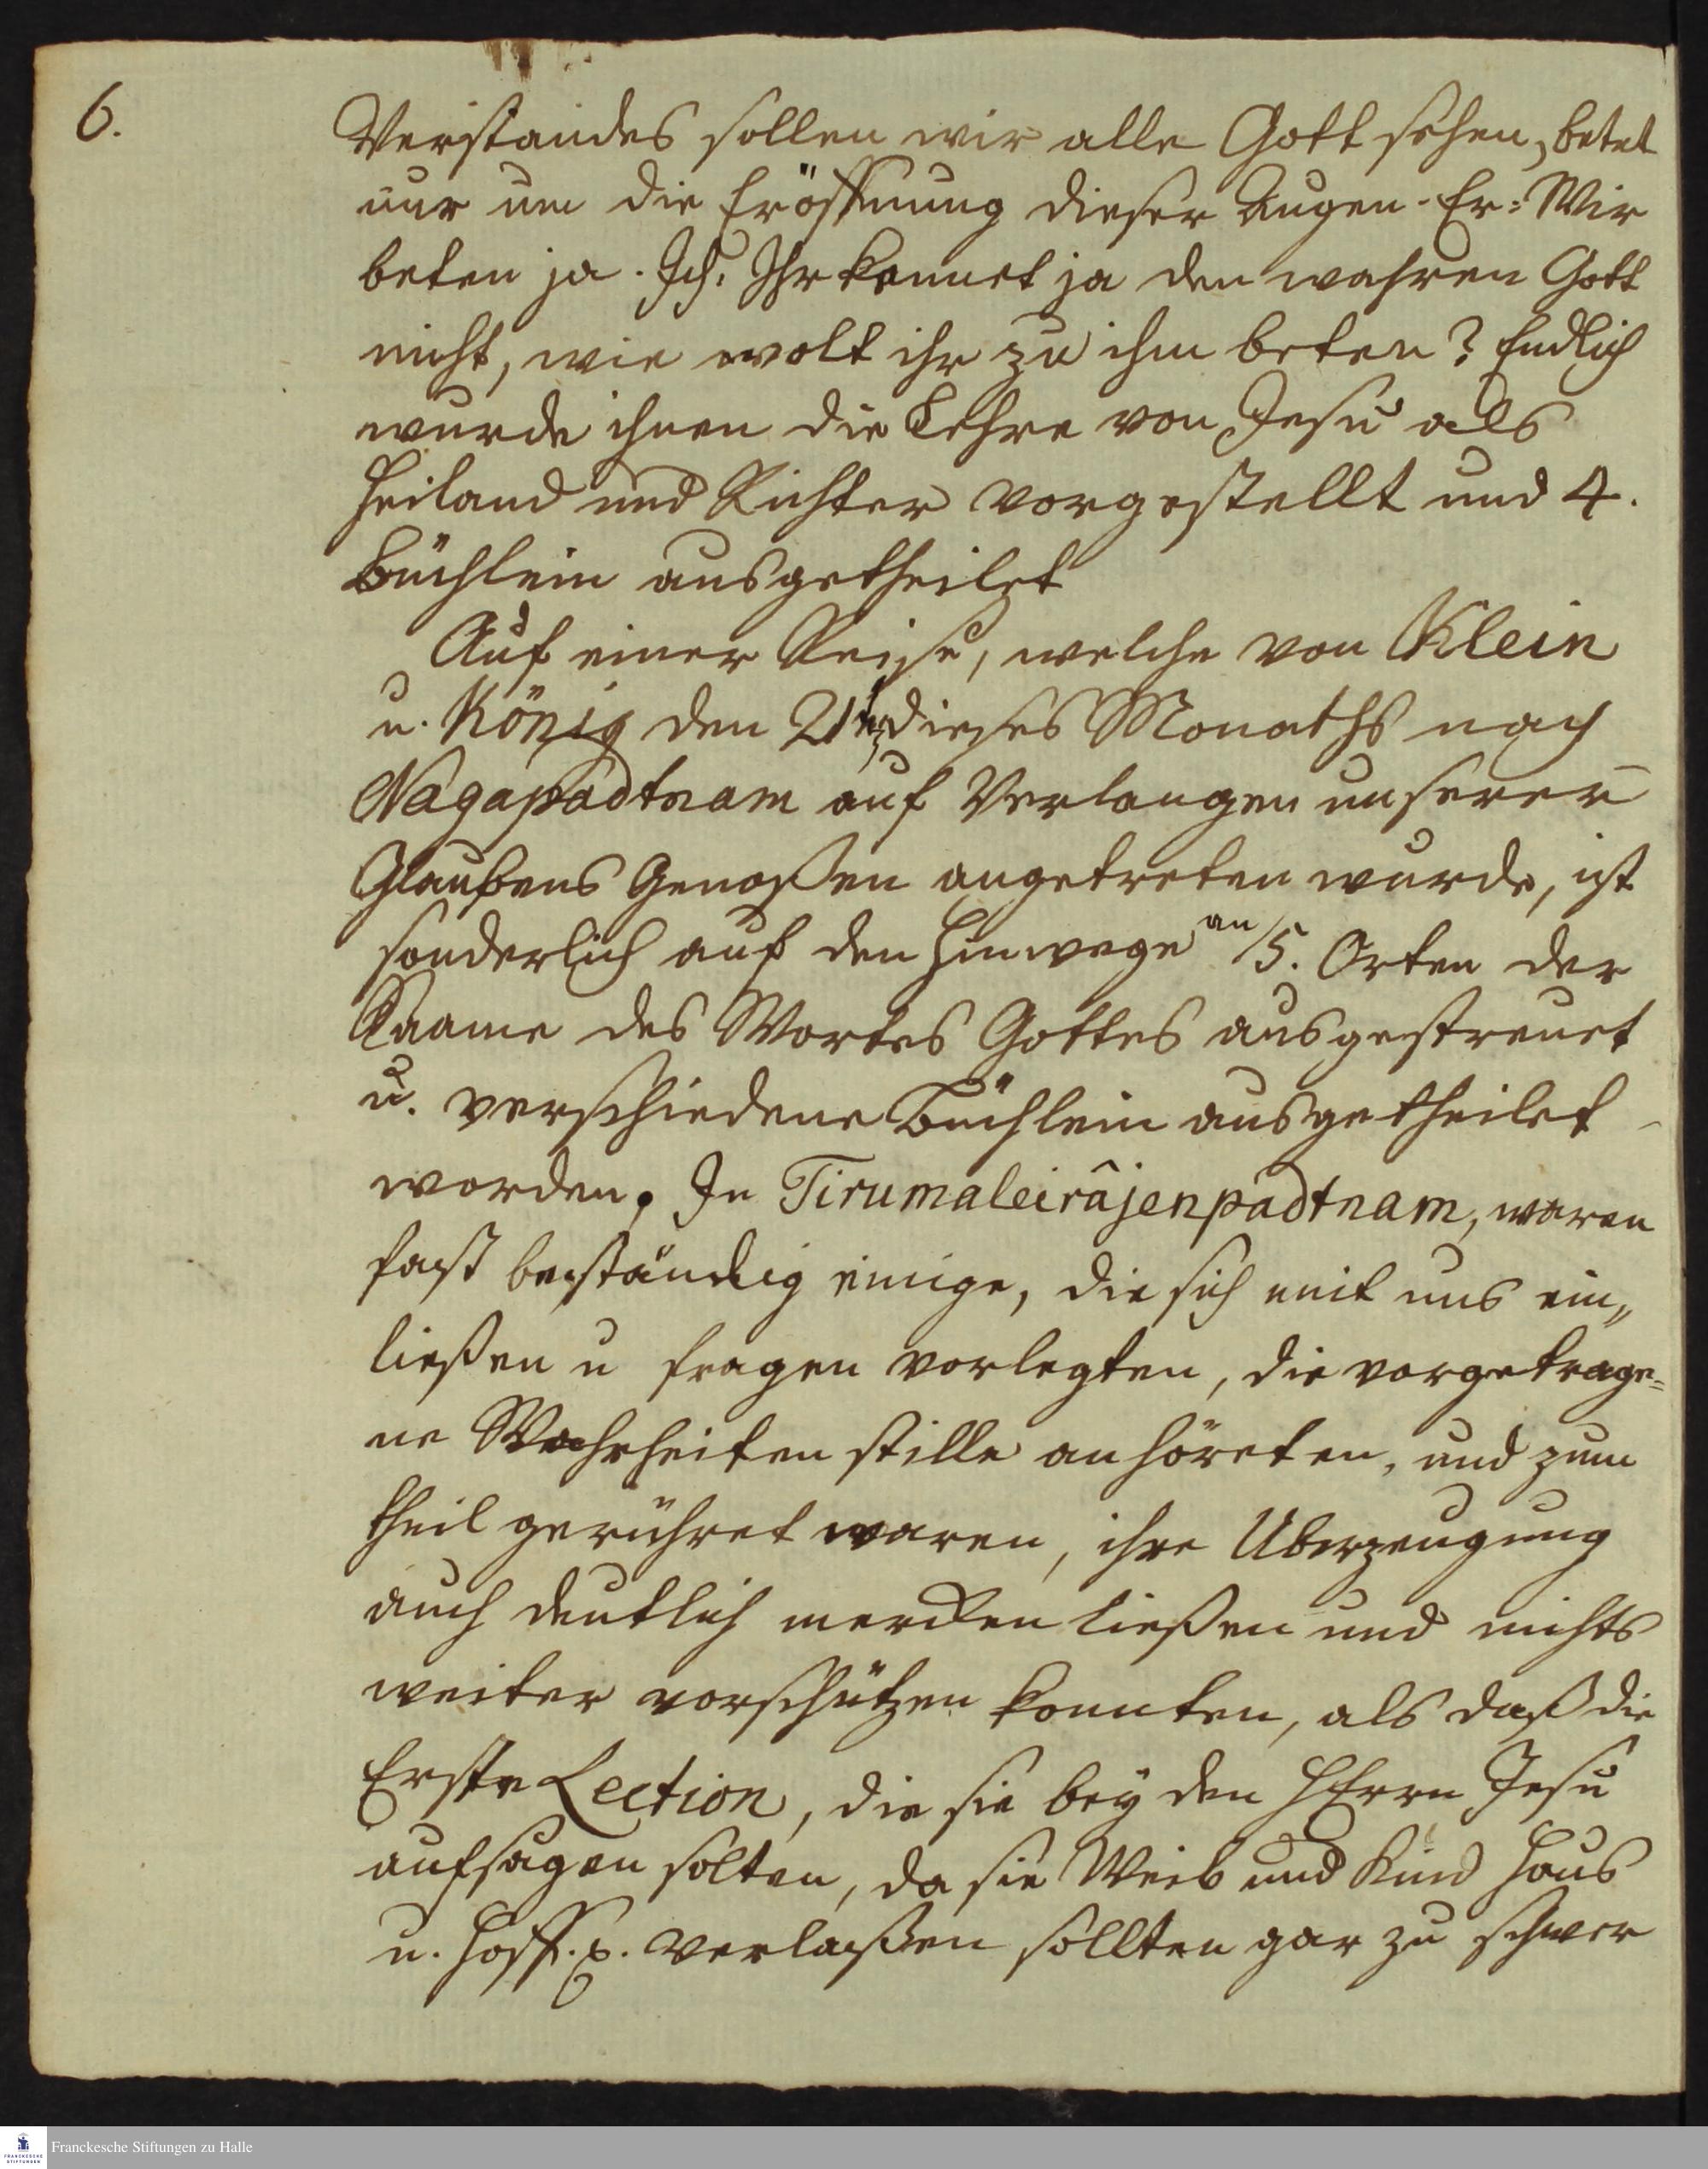 6.
Verstandes sollen wir alle Gott sehen, betet
nur um die Eröffnung dieser Augen. Er: Wir
beten ja. Ich: Ihr kennet ja den wahren Gott
nicht, wie wolt ihr zu ihm beten? Endlich
wurde ihnen die Lehre von Jesu als
Heiland und Richter vorgestellt und 4.
Büchlein ausgetheilet
Auf einer Reise, welche von Klein
u. König den 21ten dieses Monaths nach
Nagapadtnam auf Verlangen unserer
Glaubens Genoßen angetreten wurde, ist
sonderlich auf den Hinwege an 5. Orten der
Saame des Wortes Gottes ausgestreuet
u. verschiedene Büchlein ausgetheilet
worden. In Tirumaleirâjenpadtnam, waren
fast beständig einige, die sich mit uns ein„
ließen u fragen vorlegten, die vorgetrage=
ne Wahrheiten stille anhöreten, und zum
theil gerühret waren, ihre Uberzeugung
auch deutlich mercken ließen und nichts
weiter vorschützen konnten, als daß die
Erste Lection, die sie bey den HErrn Jesu
aufsagen solten, da sie Weib und Kind Haus
u. Hoff. p. verlaßen sollten gar zu schwer
Franckesche Stiftungen zu Halle
FRANCKESCHE
STIFTUNGEN